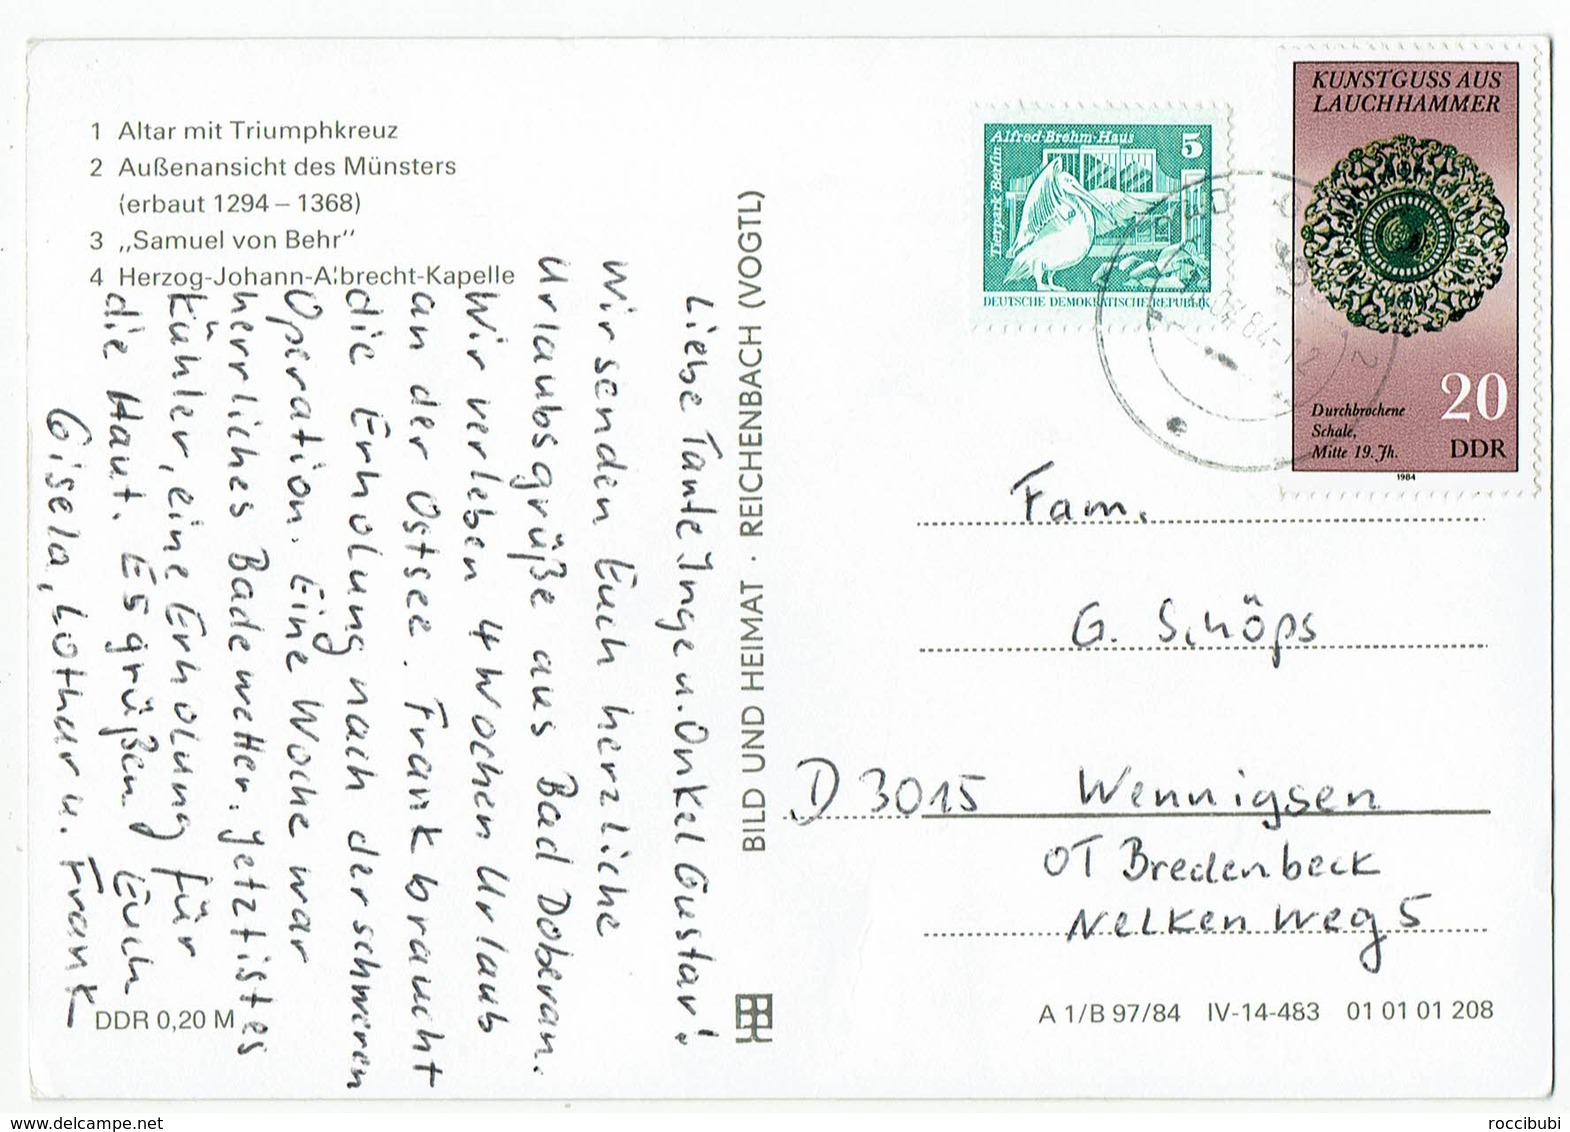 1 Altar mit Triumphkreuz
2 Außenansicht des Münsters
(erbaut 1294 – 1368)
3 „Samuel von Behr“
4 Herzog-Johann-Albrecht-Kapelle
Liebe Tante Inge u. Onkel Gustav!
Wir senden Euch herzliche
Urlaubsgrüße aus Bad Doberan.
Wir verleben 4 Wochen Urlaub
an der Ostsee. Frank braucht
die Erholung nach der schweren
Operation. Eine Woche war
herrliches Badewetter. Jetzt ist es
kühler, eine Erholung für
die Haut. Es grüßen Euch
Gisela, Lothar u. Frank
DDR 0,20 M
BILD UND HEIMAT · REICHENBACH (VOGTL)
Alfred-Brehm-Haus
5
Tierpark Berlin
DEUTSCHE DEMOKRATISCHE REPUBLIK
KUNSTGUSS AUS
LAUCHHAMMER
20
Durchbrochene
Schale,
Mitte 19. Jh.
DDR
1984
84-12
2
Fam.
G. Schöps
D 3015 Wennigsen
OT Bredenbeck
Nelkenweg 5
A 1/B 97/84 IV-14-483 01 01 01 208
www.delcampe.net
roccibubi